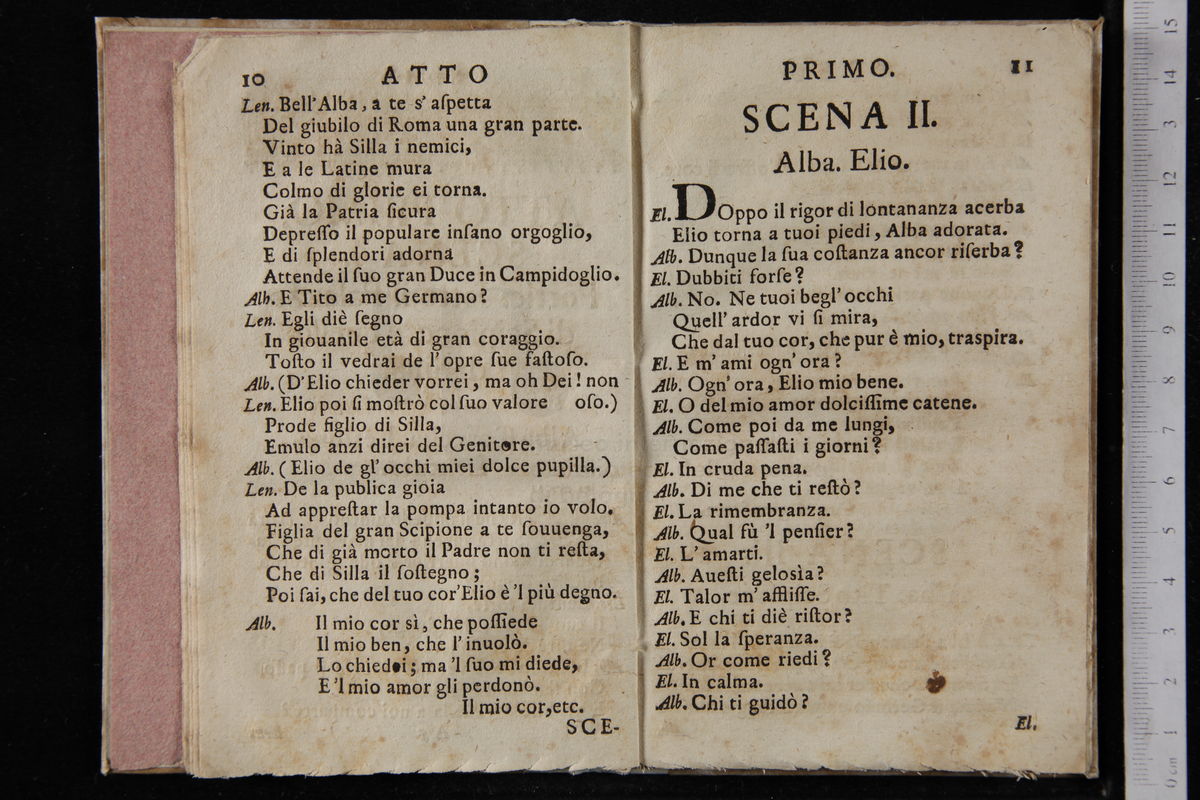 10 ATTO
Len. Bell'Alba, a te s' aſpetta
Del giubilo di Roma una gran parte.
Vinto hà Silla i nemici,
E a le Latine mura
Colmo di glorie ei torna.
Già la Patria ſicura
Depreſſo il populare inſano orgoglio,
E di ſplendori adorna
Attende il ſuo gran Duce in Campidoglio.
Alb. E Tito a me Germano?
Len. Egli diè ſegno
In giouanile età di gran coraggio.
Toſto il vedrai de l' opre ſue faſtoſo.
Alb. (D'Elio chieder vorrei, ma oh Dei! non
Len. Elio poi ſi moſtrò col ſuo valore oſo.)
Prode figlio di Silla,
Emulo anzi direi del Genitore.
Alb. (Elio de gl' occhi miei dolce pupilla.)
Len. De la publica gioia
Ad appreſtar la pompa intanto io volo.
Figlia del gran Scipione a te ſouuenga,
Che di già morto il Padre non ti reſta,
Che di Silla il ſoſtegno;
Poi ſai, che del tuo cor'Elio è 'l più degno.
Alb. Il mio cor sì, che poſſiede
Il mio ben, che l' inuolò.
Lo chiedei; ma 'l ſuo mi diede,
E 'l mio amor gli perdonò.
Il mio cor,etc.
SCE-
PRIMO. 11
SCENA II.
Alba. Elio.
El. DOppo il rigor di lontananza acerba
Elio torna a tuoi piedi, Alba adorata.
Alb. Dunque la ſua coſtanza ancor riſerba?
El. Dubbiti forſe?
Alb. No. Ne tuoi begl' occhi
Quell' ardor vi ſi mira,
Che dal tuo cor, che pur è mio, traspira.
El. E m' ami ogn' ora?
Alb. Ogn' ora, Elio mio bene.
El. O del mio amor dolciſſime catene.
Alb. Come poi da me lungi,
Come paſſaſti i giorni?
El. In cruda pena.
Alb. Di me che ti reſtò?
El. La rimembranza.
Alb. Qual fù 'l penſier?
El. L' amarti.
Alb. Aueſti gelosìa?
El. Talor m' affliſſe.
Alb. E chi ti diè riſtor?
El. Sol la ſperanza.
Alb. Or come riedi?
El. In calma.
Alb. Chi ti guidò?
El.